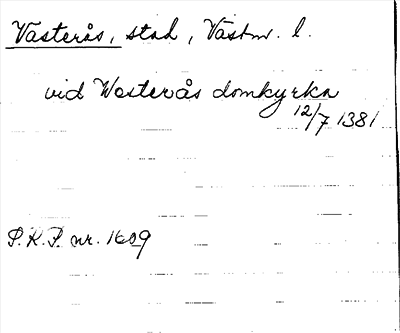 Västerås, stad, Västm. l.
vid Westerås domkyrka
12/7 1381
S.R.P. nr. 1609